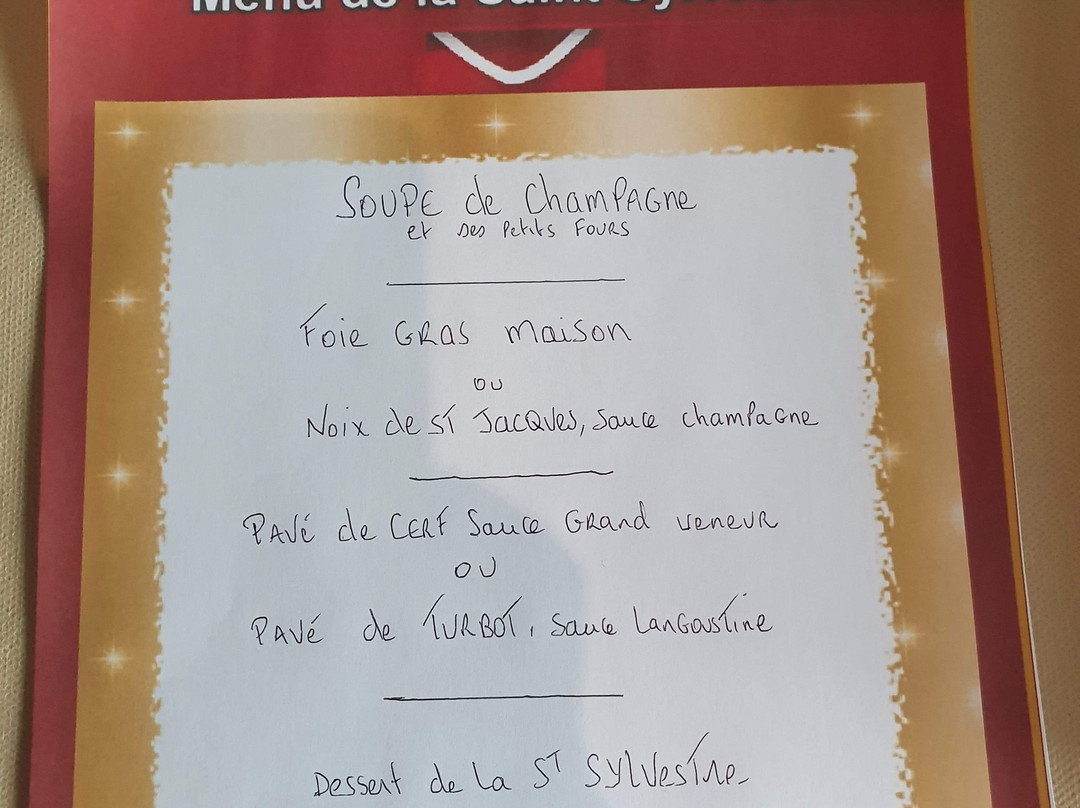 Menu de la Saint Sylvestre
SOUPE de ChamPAGne
et ses Petits FOURS
Foie GRAS maison
OU
Noix de ST JACQUes, Sauce champaGne
PAVé de CERF Sauce GRand veneuR
OU
PAVé de TURBOT, sauce LanGoustine
Dessert de La ST SYLVesTre